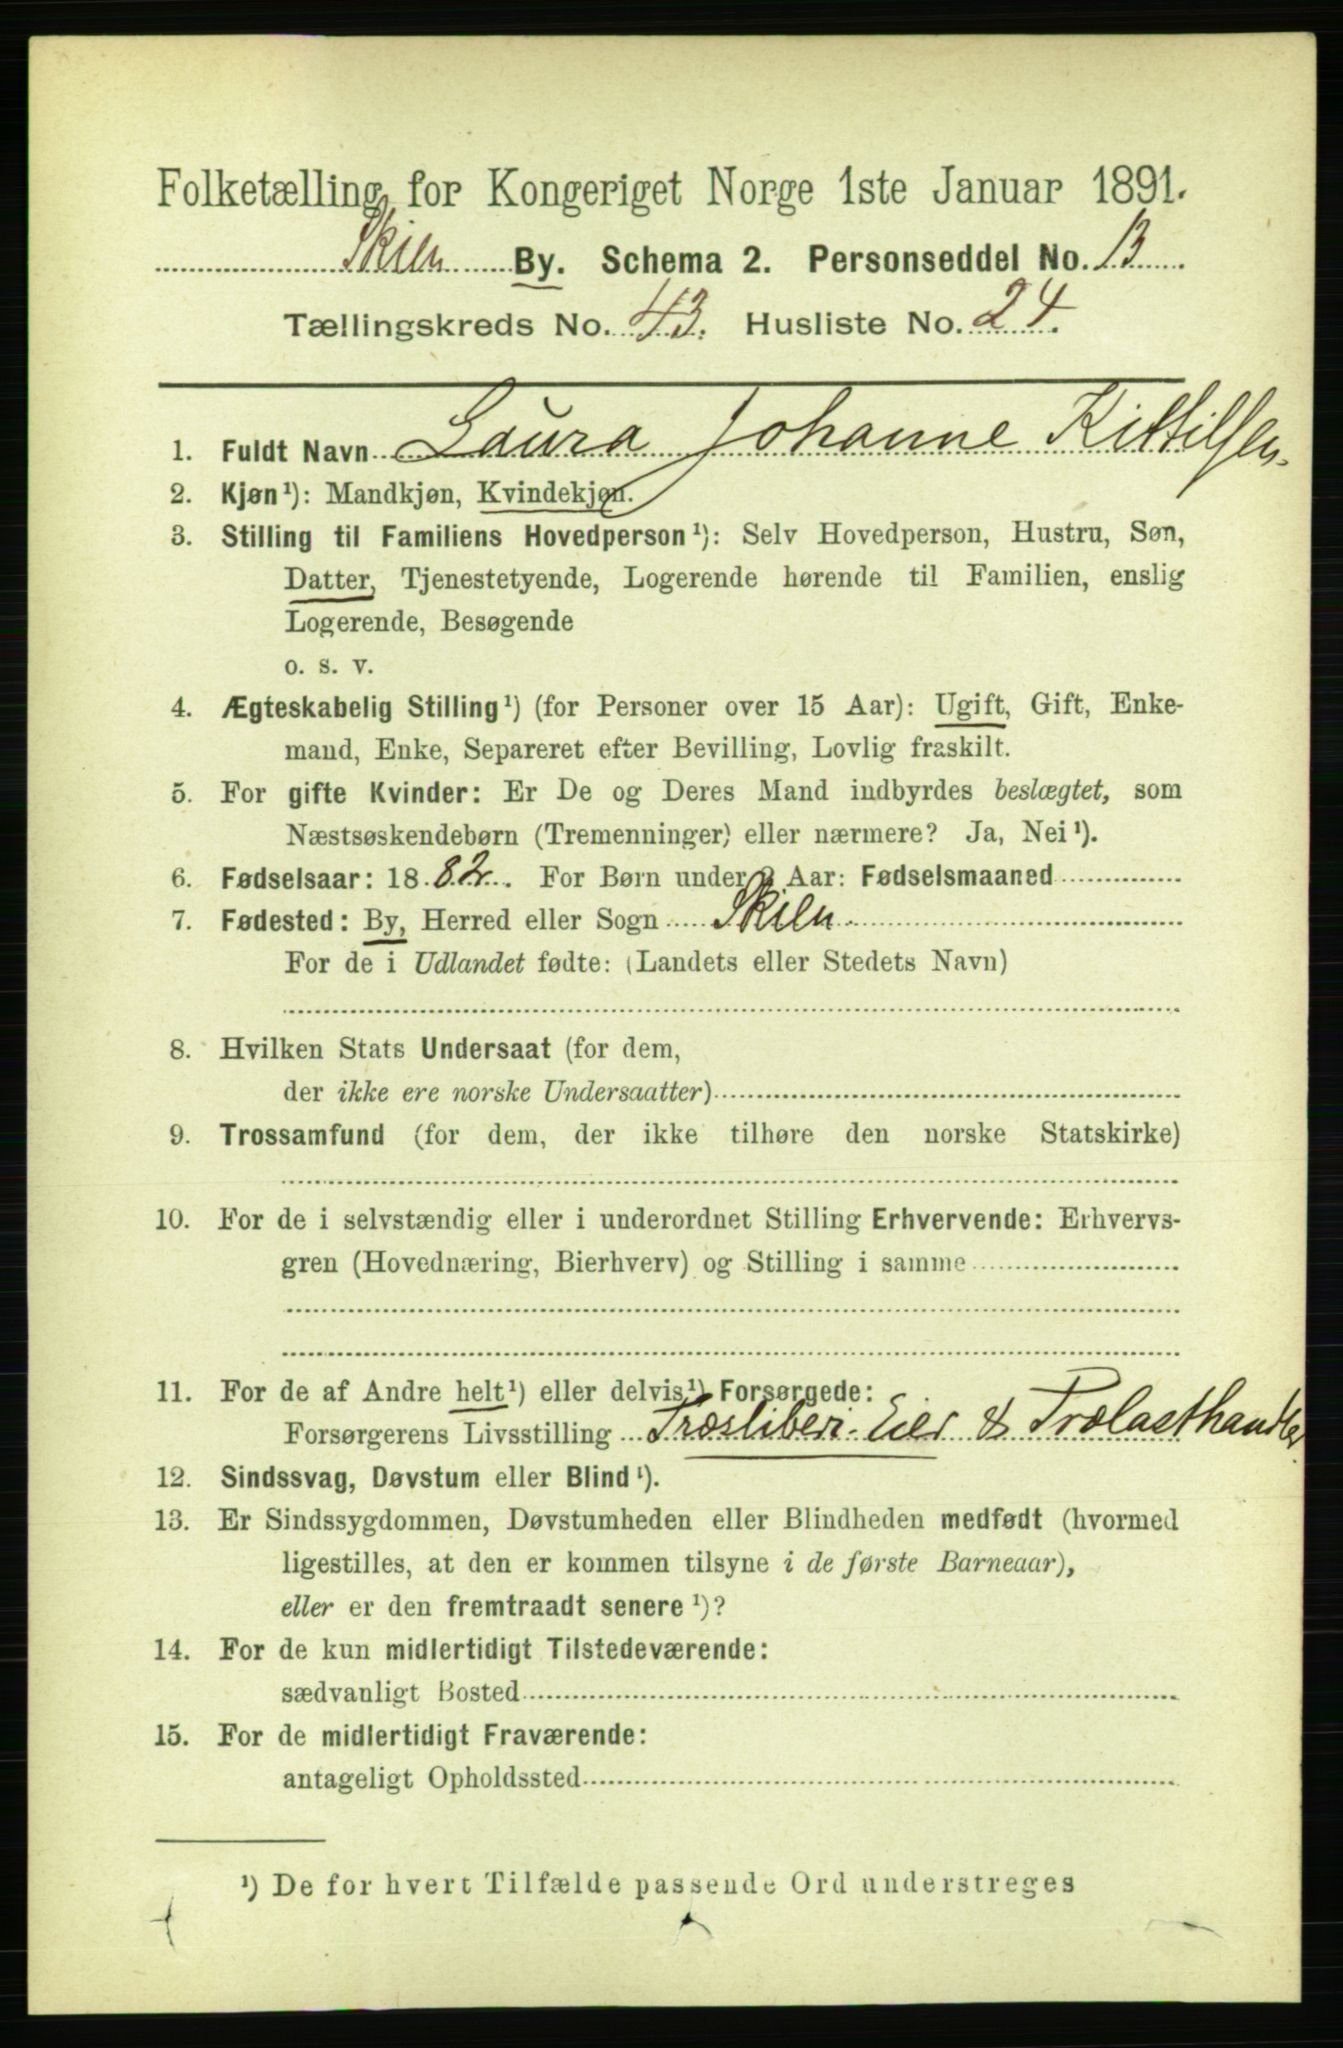 Folketælling for Kongeriget Norge 1ste Januar 1891.
Skien By. Schema 2. Personseddel No. 13
Tællingskreds No. 43. Husliste No. 24.
1. Fuldt Navn Laura Johanne Kittilsen.
2. Kjøn¹): Mandkjøn, Kvindekjøn.
3. Stilling til Familiens Hovedperson¹): Selv Hovedperson, Hustru, Søn,
Datter, Tjenestetyende, Logerende hørende til Familien, enslig
Logerende, Besøgende
o. s. v.
4. Ægteskabelig Stilling¹) (for Personer over 15 Aar): Ugift, Gift, Enke-
mand, Enke, Separeret efter Bevilling, Lovlig fraskilt.
5. For gifte Kvinder: Er De og Deres Mand indbyrdes beslægtet, som
Næstsøskendebørn (Tremenninger) eller nærmere? Ja, Nei¹).
6. Fødselsaar: 1882. For Børn under 2 Aar: Fødselsmaaned
7. Fødested: By, Herred eller Sogn Skien
For de i Udlandet fødte: (Landets eller Stedets Navn)
8. Hvilken Stats Undersaat (for dem,
der ikke ere norske Undersaatter)
9. Trossamfund (for dem, der ikke tilhøre den norske Statskirke)
10. For de i selvstændig eller i underordnet Stilling Erhvervende: Erhvervs-
gren (Hovednæring, Bierhverv) og Stilling i samme
11. For de af Andre helt¹) eller delvis¹) Forsørgede:
Forsørgerens Livsstilling Træsliberi-Eier & Trælasthandler
12. Sindssvag, Døvstum eller Blind¹).
13. Er Sindssygdommen, Døvstumheden eller Blindheden medfødt (hvormed
ligestilles, at den er kommen tilsyne i de første Barneaar),
eller er den fremtraadt senere¹)?
14. For de kun midlertidigt Tilstedeværende:
sædvanligt Bosted
15. For de midlertidigt Fraværende:
antageligt Opholdssted
¹) De for hvert Tilfælde passende Ord understreges